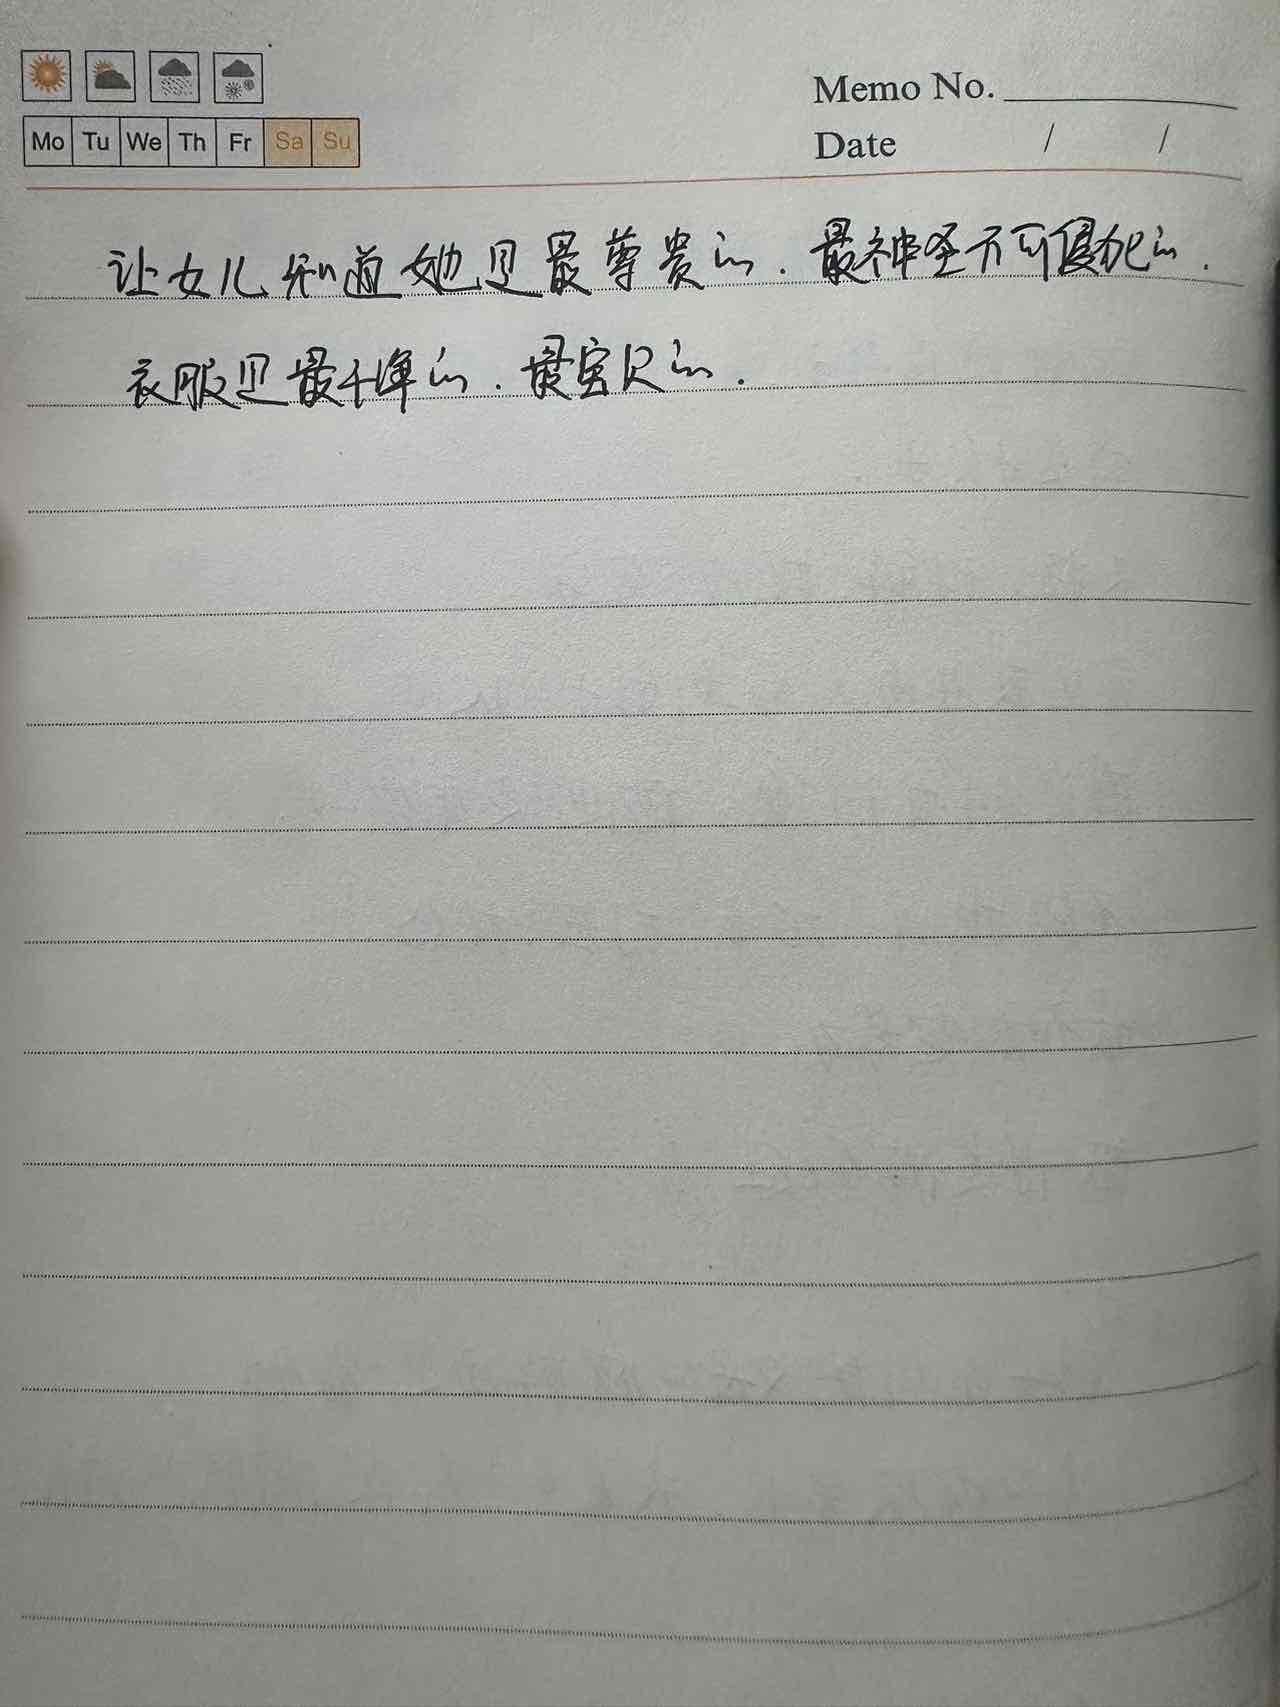 Memo No.
Mo Tu We Th Fr Sa Su
Date / /
让女儿知道她是最尊贵的.最神圣不可侵犯的.
衣服是最干净的.最宝贝的.